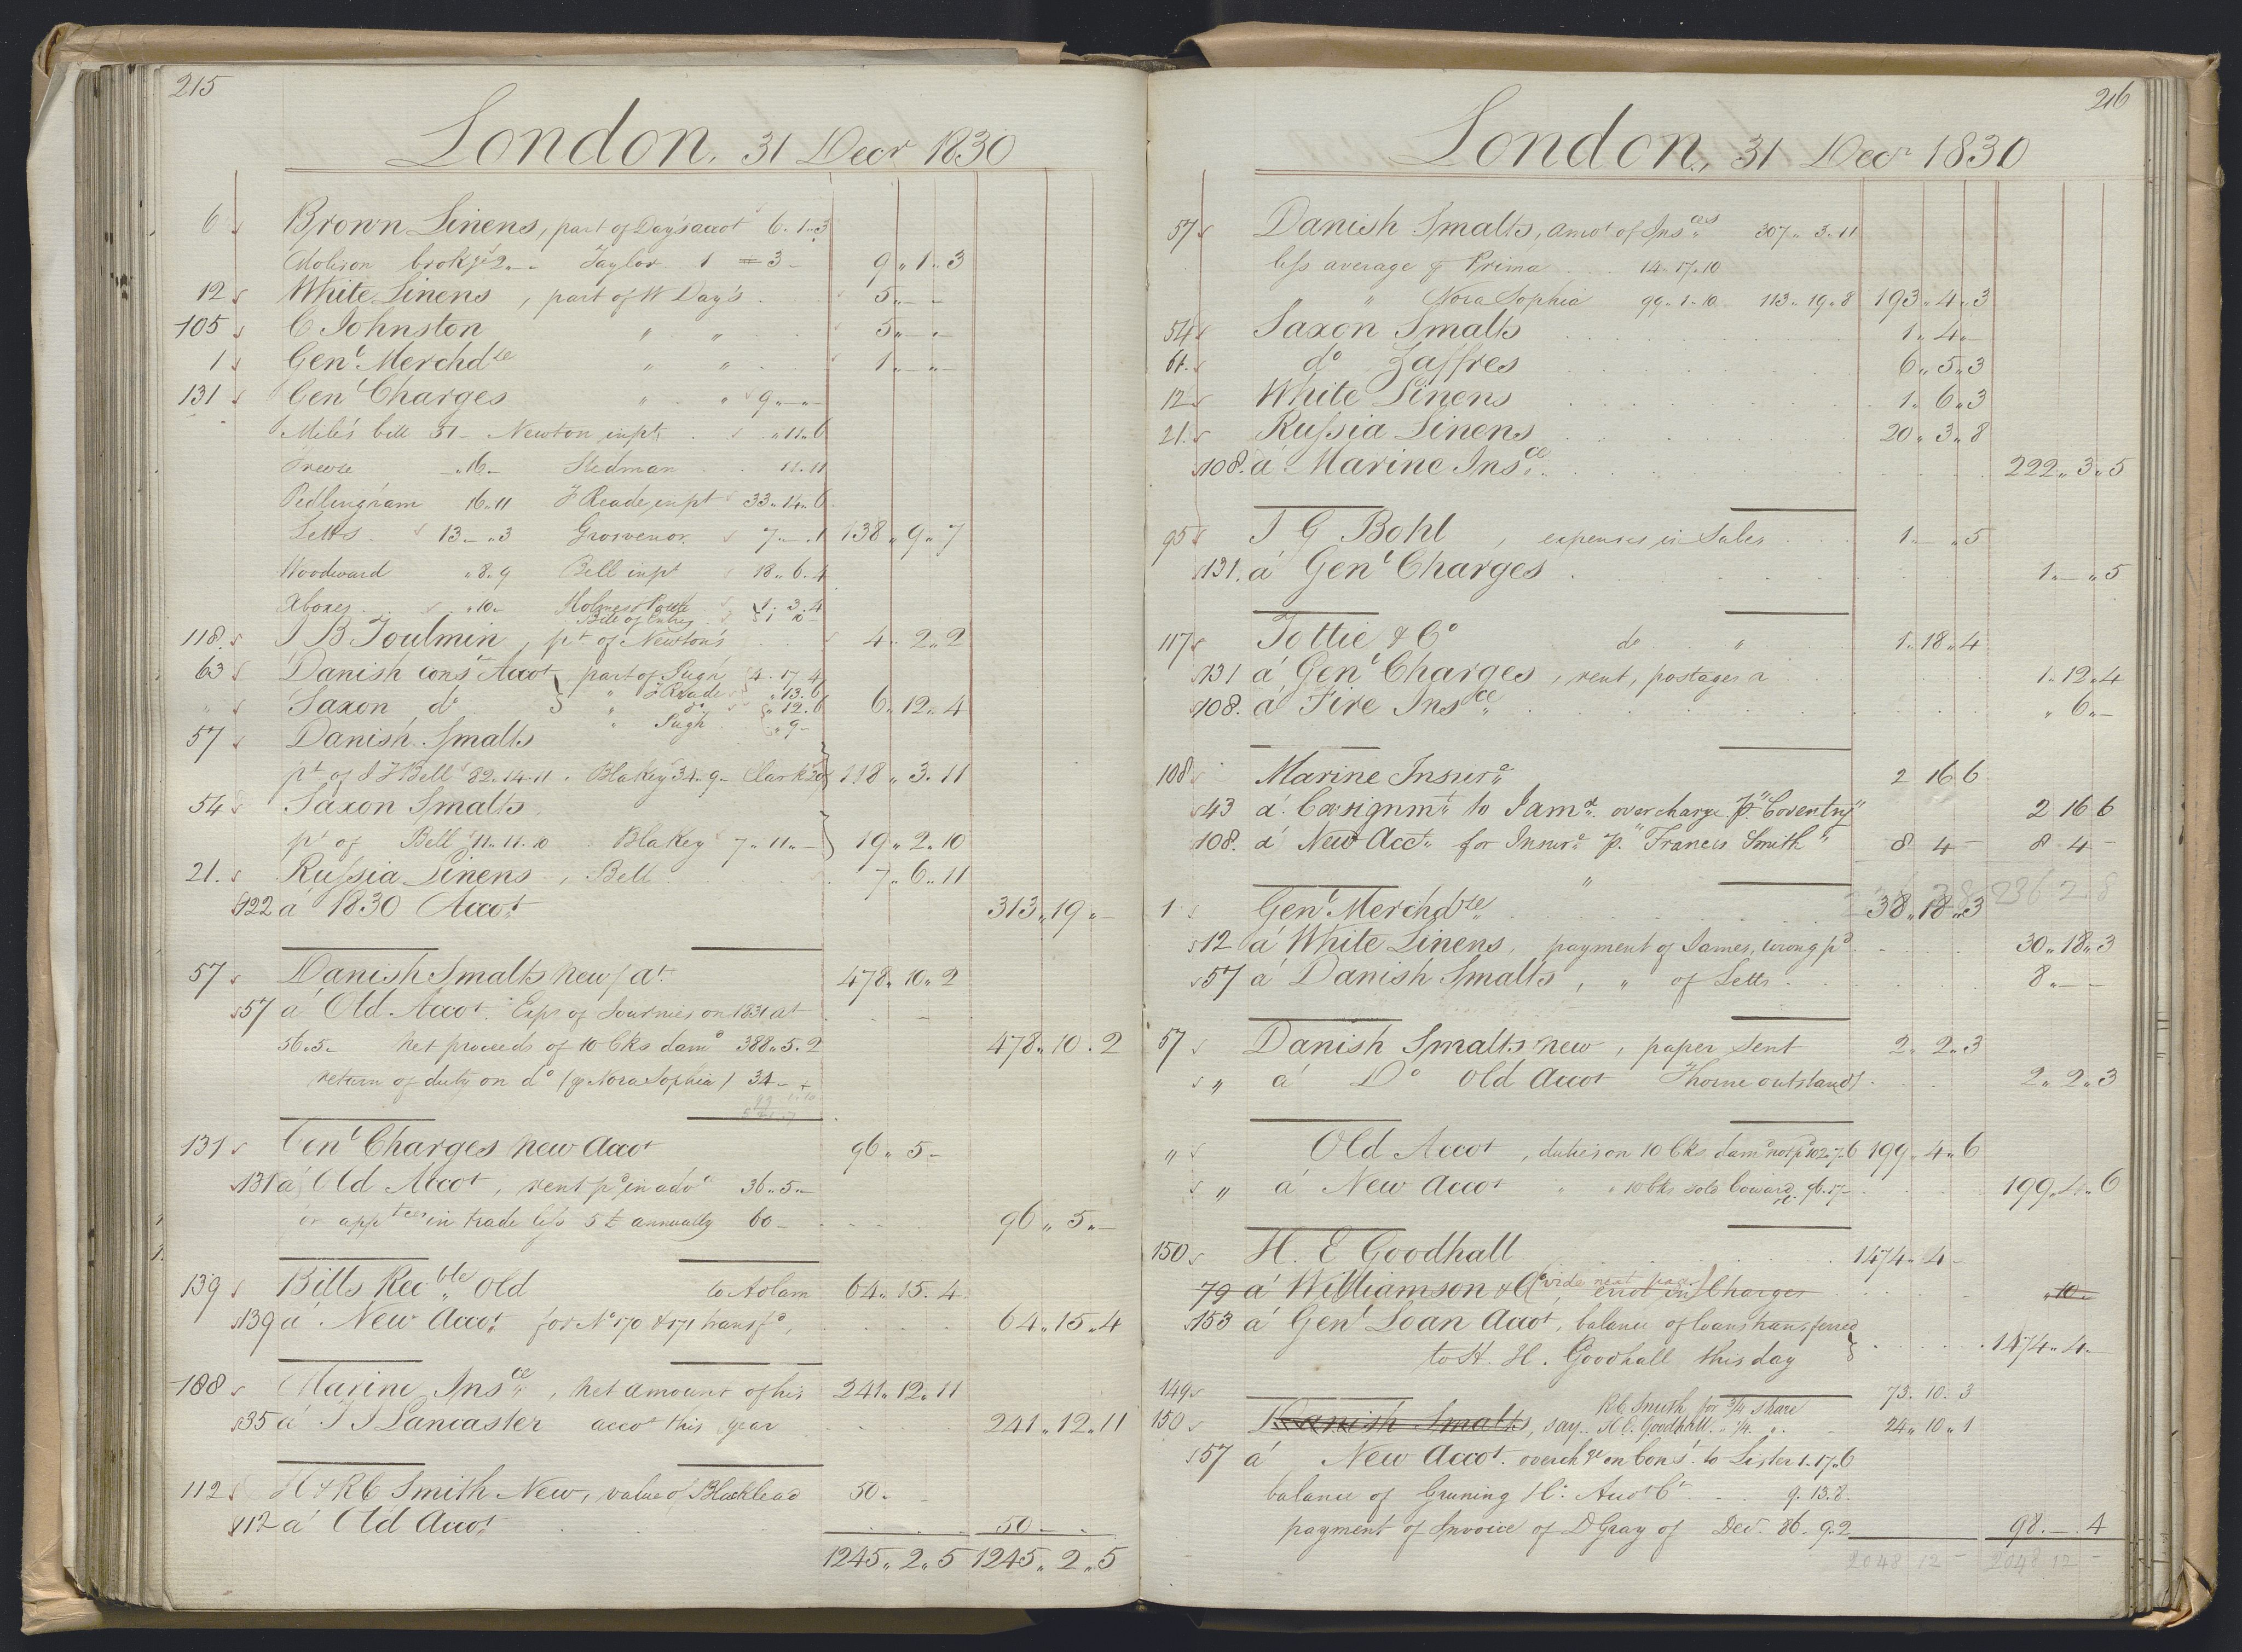 215
London, 31 Decr 1830
6 Brown Linens, part of Day's accot 6..1..3
Molison brokge 2..- Taylor 1=3- 9..1..3
12 White Linens, part of W Day's 5..-..-
105 C Johnston " " 5..-..-
1 Genl Merchdze " " 1..-..-
131 Genl Charges " " 9..-..-
Mile's bill 31- Newton inpt ..11..6
..16- Stedman 11..11
Pedlingham 16..11 J Reade, inpt 33..14..6
Letts 13-..3 Grosvenor 7..-..1 138..9..7
Woodward ..8..9 Bell inpt 18..6..4
Xboxes ..10- Holmes & Powle 1..3..4
Bill of Entry 1 10-
118 J B Toulmin, pt of Newton's 4..2..2
63 Danish const Accot part of Pugh 4..17..4
" J Reade ..13..6
" Saxon do " do ..12..6 6..12..4
" Pugh ..9-
57 Danish Smalts
pt of J J Bell 82..14..11. Blakey 34..9- Clark 118..3..11
54 Saxon Smalts
pt of Bell 11..11..10 Blakey 7..11..- 19..2..10
21. Russia Linens, Bell 7..6..11
122 á 1830 Accot 313..19..-
57 Danish Smalts new/at 478..10..2
57 á Old Accot Exps of Journies on 1831 at
56..5- net proceeds of 10 Cks damd 388..5..2 478..10..2
return of duty on do (p Nora Sophia) 34-
131 Genl Charges new accot 96..5-
131 á Old Accot, rent pd in advce 36..5..-
on appces in trade less 5 £ annually 60- 96..5..-
139 Bills Recble old to Adam 64..15..4
139 á New Accot for No 170 & 171 transfd, 64..15..4
108 Marine Insce, net amount of his 241..12..11
35 á J J Lancaster accot this year 241..12..11
112 H & R C Smith New, value of Blacklead 50-
112 á Old Accot 50-
1245..2..5 1245..2..5
216
London, 31 Decr 1830
57 Danish Smalts, amot of Insces 307..3..11
less average p Prima 14..17..10
" " Nora Sophia 99..1..10 113..19..8 193..4..3
54 Saxon Smalts 1..4..-
64. do Zaffres 6..5..3
12 White Linens 1..6..3
21. Russia Linens 20..3..8
108. á Marine Insce. 222..3..5
95 J G Bohl, expenses in Sales 1..-..5
131. á Genl Charges 1..-..5
117 Tottie & Co do " 1..18..4
131 á Genl Charges, rent, postages a 1..12..4
108. á Fire Insce ..6..-
108 Marine Insure 2 16 6
43 á Consignmt to Jamd overcharge p "Coventry" 2 16 6
108. á New Acct for Insure p. "Francis Smith" 8 4 - 8 4 -
236 2 8
1 Genl Merchdze 38..18..3
12 á White Linens, payment of James, wrong pd 30..18..3
57 á Danish Smalts, " of Letts 8..-..-
57 Danish Smalts new, paper sent 2..2..3
" á Do old accot Thorne outstandg 2..2..3
" Old Accot, duties on 10 Cks damd not pd 102..7..6 199..4..6
" á New Accot " 10 Cks sold Coward &c 96..17- 199..4..6
150 H. E Goodhall 1474..4-
79 á Williamson & Co (vide next page) Charges ..10..-
153 á Genl Loan Accot, balance of loan transferred
to H. H. Goodhall this day 1474..4..-
149 R C Smith for 3/4 share 73..10..3
150 Danish Smalts, say.. H. E. Goodhall.. 1/4 " 24..10..1
57 á New Accot. overchge on Const to Lister 1..17..6
balance of Gruning H: Accot Ct 9..13..8.
payment of Invoice of D Gray of Decr 86..9..2 98..-..4
2048 12 - 2048 12 -